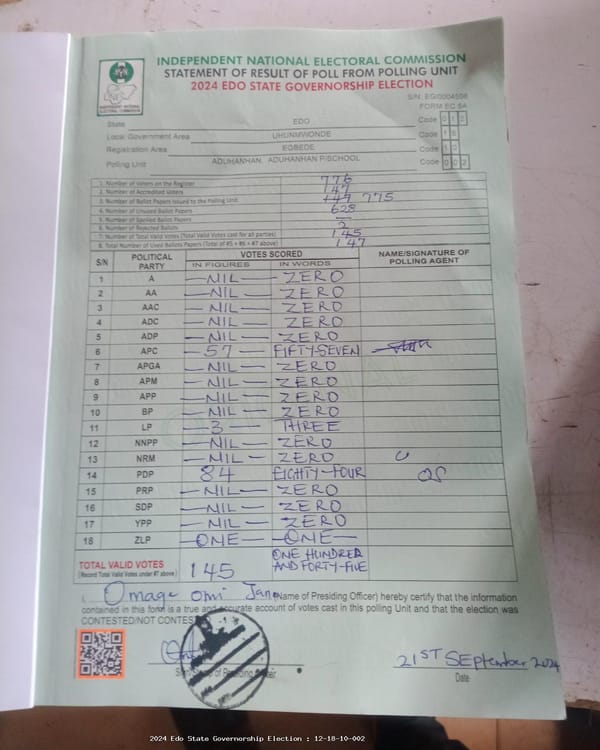 INDEPENDENT NATIONAL ELECTORAL COMMISSION
STATEMENT OF RESULT OF POLL FROM POLLING UNIT
2024 EDO STATE GOVERNORSHIP ELECTION
FORM EC 8A
State EDO Code 012
Local Government Area UHUNMWONDE Code 18
Registration Area EGBEDE Code 10
Polling Unit ADUHANHAN, ADUHANHAN P/SCHOOL Code 002
1. Number of Voters on the Register 776
2. Number of Accredited Voters 147
3. Number of Ballot Papers Issued to the Polling Unit 775
4. Number of Unused Ballot Papers 628
5. Number of Spoiled Ballot Papers —
6. Number of Rejected Ballots 2
7. Number of Total Valid Votes (Total Valid Votes cast for all parties) 145
8. Total Number of Used Ballots Papers (Total of #5 + #6 + #7 above) 147
S/N POLITICAL PARTY VOTES SCORED IN FIGURES IN WORDS NAME/SIGNATURE OF POLLING AGENT
1 A NIL ZERO
2 AA NIL ZERO
3 AAC NIL ZERO
4 ADC NIL ZERO
5 ADP NIL ZERO
6 APC 57 FIFTY-SEVEN
7 APGA NIL ZERO
8 APM NIL ZERO
9 APP NIL ZERO
10 BP NIL ZERO
11 LP 3 THREE
12 NNPP NIL ZERO
13 NRM NIL ZERO
14 PDP 84 EIGHTY-FOUR
15 PRP NIL ZERO
16 SDP NIL ZERO
17 YPP NIL ZERO
18 ZLP ONE ONE
TOTAL VALID VOTES 145 ONE HUNDRED AND FORTY-FIVE
(Record Total Valid Votes under #7 above)
I, Omage Omi Jane (Name of Presiding Officer) hereby certify that the information
contained in this form is a true and accurate account of votes cast in this polling Unit and that the election was
CONTESTED/NOT CONTESTED
21ST SEptember 2024
Date
2024 Edo State Governorship Election : 12-18-10-002